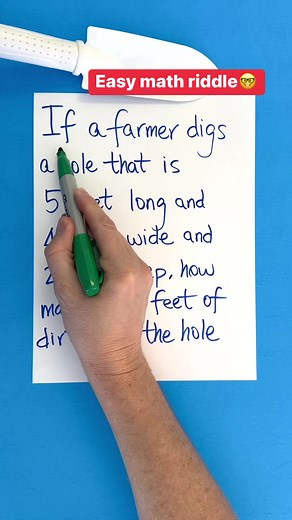 Easy math riddle🤓
If a farmer digs
a hole that is
5 long and
wide and
how
feet of
the hole